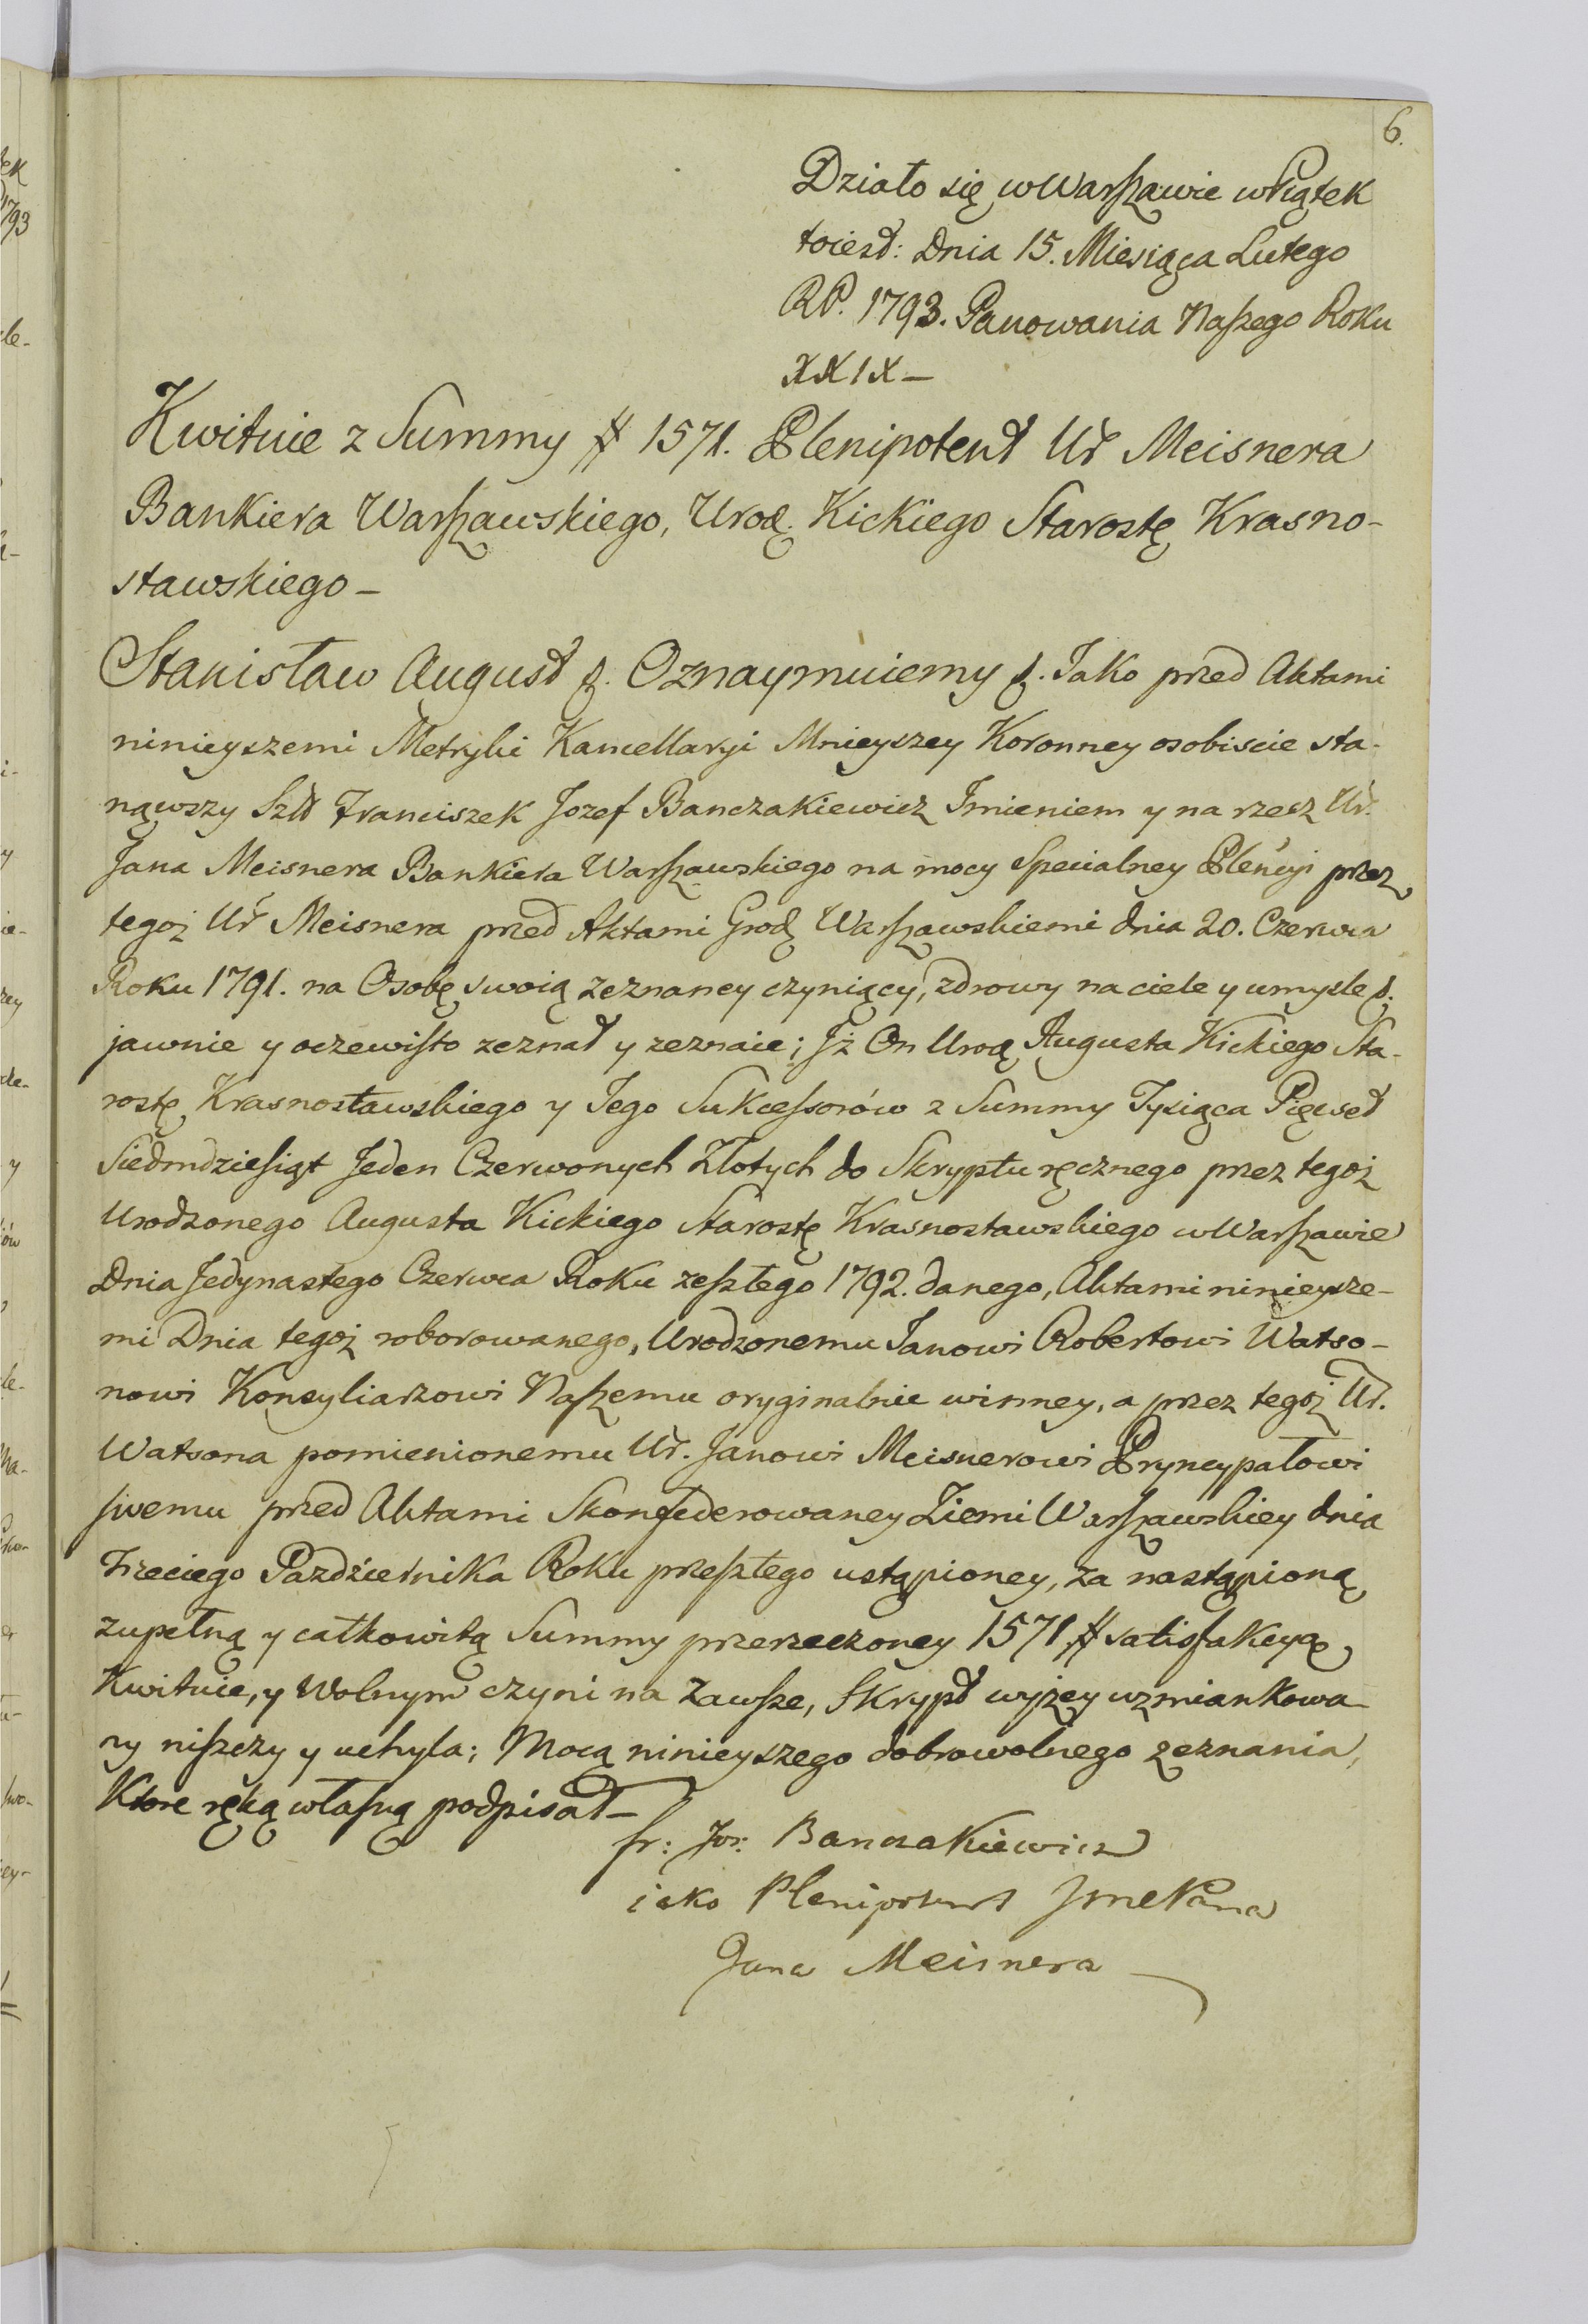 6.
Działo się w Warszawie w Piątek
toiest: Dnia 15. Miesiąca Lutego
RP. 1793. Panowania Naszego Roku
XXIX –
Kwituie z Summy # 1571. Plenipotent Ur Meisnera
Bankiera Warszawskiego, Urod. Kickiego Starostę Krasno-
stawskiego –
Stanisław August &. Oznaymuiemy &. Jako przed Aktami
ninieyszemi Metryki Kancellaryi Mnieyszey Koronney osobiscie sta-
nąwszy Szl Franciszek Jozef Banczakiewicz Imieniem y na rzecz Ur.
Jana Meisnera Bankiera Warszawskiego na mocy Specialney Plencyi przez
tegoż Ur Meisnera przed Aktami Grodz Warszawskiemi dnia 20. Czerwca
Roku 1791. na Osobę swoią zeznaney czyniący, zdrowy na ciele y umysle &.
jawnie y oczewisto zeznał y zeznaie; Iż On Urod Augusta Kickiego Sta-
rostę Krasnostawskiego y Jego Sukcessorów z Summy Tysiąca Pięcset
Siedmdziesiąt Jeden Czerwonych Złotych do Skryptu ręcznego przez tegoż
Urodzonego Augusta Kickiego Starostę Krasnostawskiego w Warszawie
Dnia Jedynastego Czerwca Roku zeszłego 1792. danego, Aktami ninieysze-
mi Dnia tegoż roborowanego, Urodzonemu Janowi Robertowi Watso-
nowi Konsyliarzowi Naszemu oryginalnie winney, a przez tegoż Ur.
Watsona pomienionemu Ur. Janowi Meisnerowi Pryncypałowi
swemu przed Aktami Skonfederowaney Ziemi Warszawskiey dnia
Trzeciego Pazdziernika Roku przeszłego ustąpioney, za nastąpioną
zupełną y całkowitą Summy przerzeczoney 1571 # satisfakcyą
Kwituie, y Wolnym czyni na Zawsze, Skrypt wyżey wzmiankowa
ny niszczy y uchyla; Mocą ninieyszego dobrowolnego zeznania,
Ktore ręką własną podpisał –
Fr: Joz: Banczakiewicz
iako Plenipotent Jmć Pana
Jana Meisnera